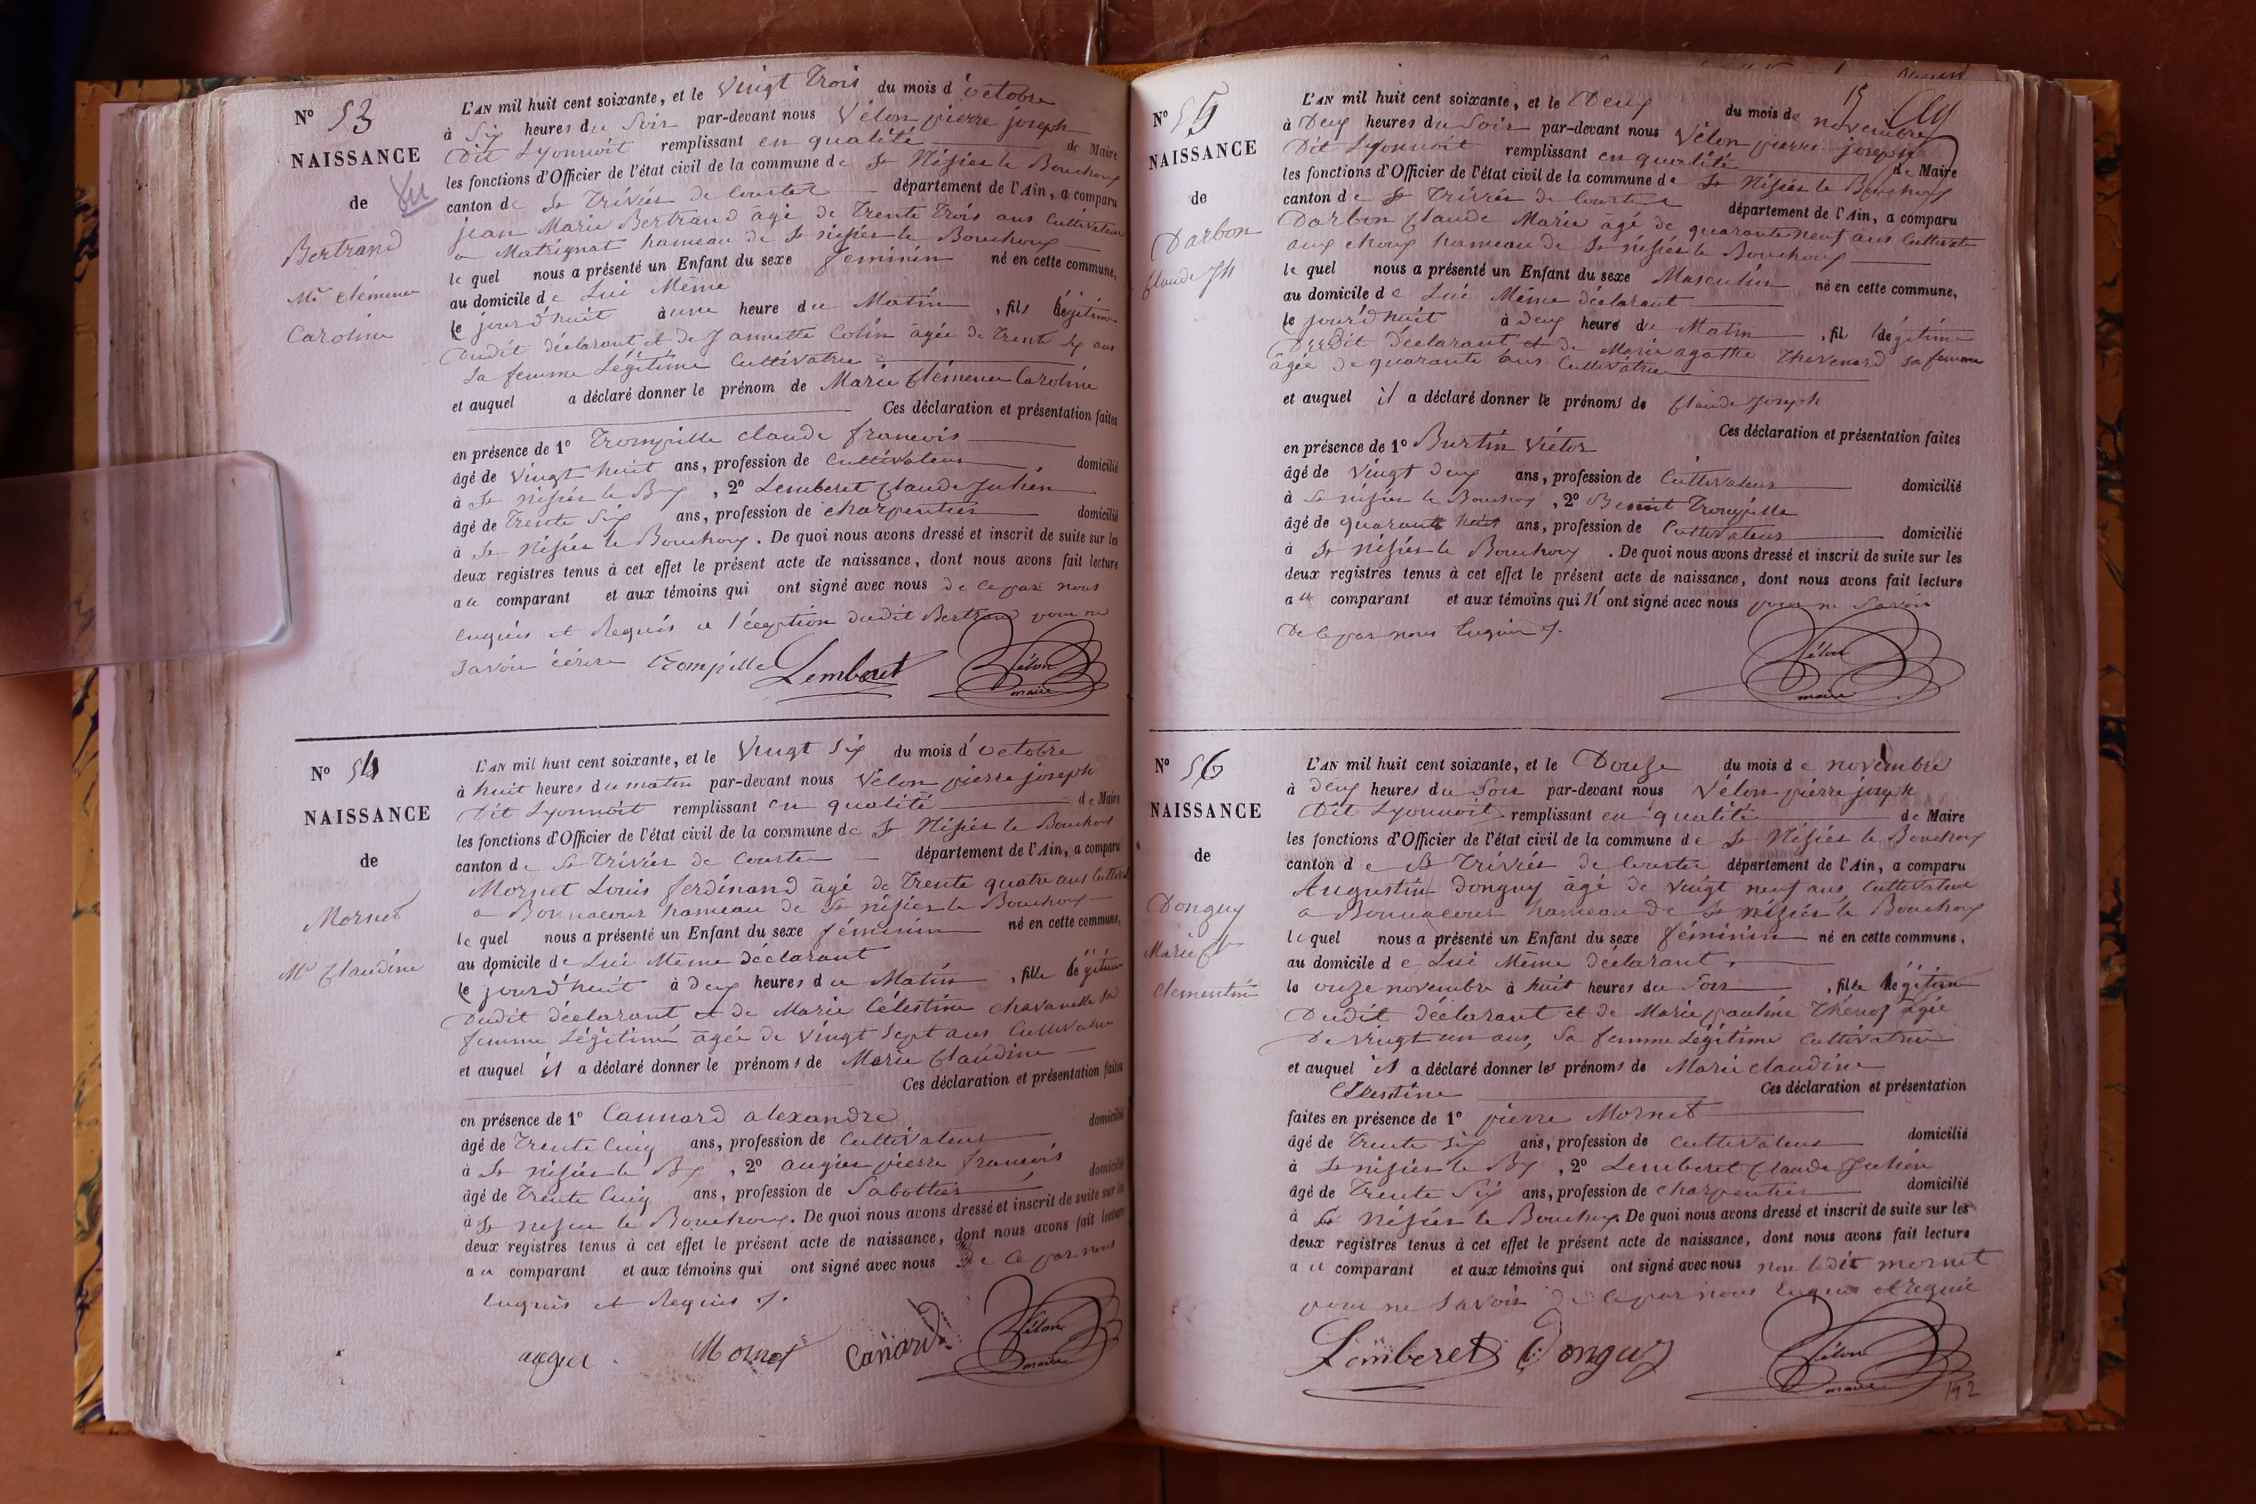 N° 53
NAISSANCE
de
Bertrand
Mie Clémence
Caroline
L'AN mil huit cent soixante, et le Vingt Trois du mois d'octobre
à Six heures du Soir par-devant nous Vélon pierre joseph
Dit Lyonnoit remplissant en qualité de Maire
les fonctions d'Officier de l'état civil de la commune de St Nisier le Bouchoux
canton de St Trivier de Courtes département de l'Ain, a comparu
jean Marie Bertrand âgé de Trente Trois ans Cultivateur
a Matrignat hameau de St nisier le Bouchoux
le quel nous a présenté un Enfant du sexe féminin né en cette commune,
au domicile de Lui Même
le jourd'huit à une heure du Matin, fils légitime
Dudit déclarant et de Jannette Colin âgée de Trente Six ans
Sa femme Légitime Cultivatrice
et auquel a déclaré donner le prénom de Marie Clémence Caroline
Ces déclaration et présentation faites
en présence de 1° Trompille claude francois
âgé de Vingt huit ans, profession de Cultivateur domicilié
à St nisier le Bx, 2° Lemberet Claude Julien
âgé de Trente Six ans, profession de charpentier domicilié
à St Nisier le Bouchoux. De quoi nous avons dressé et inscrit de suite sur les
deux registres tenus à cet effet le présent acte de naissance, dont nous avons fait lecture
a le comparant et aux témoins qui ont signé avec nous de ce par nous
enquis et Requis a l'éception dudit Bertrand pour ne
Savoir écrire Trompille Lemberet Vélon
maire
N° 54
NAISSANCE
de
Mornet
Mie Claudine
L'AN mil huit cent soixante, et le Vingt Six du mois d'octobre
à huit heures du matin par-devant nous Vélon pierre joseph
Dit Lyonnoit remplissant en qualité de Maire
les fonctions d'Officier de l'état civil de la commune de St Nisier le Bouchoux
canton de St Trivier de Courtes département de l'Ain, a comparu
Mornet Louis ferdinand âgé de Trente quatre ans Cultivat
a Bonnacour hameau de St nisier le Bouchoux
le quel nous a présenté un Enfant du sexe féminin né en cette commune,
au domicile de Lui Même déclarant
le jourd'huit à Deux heures du Matin, fille légitime
Dudit déclarant et de Marie Célestine Chavanelle Sa
femme Légitime âgée de Vingt Sept ans Cultivatrice
et auquel il a déclaré donner le prénoms de Marie Claudine
Ces déclaration et présentation faites
en présence de 1° Cannard alexandre domicilié
âgé de Trente Cinq ans, profession de Cultivateur
à St nisier le Bx, 2° augier pierre francois domicilié
âgé de Trente Cinq ans, profession de Sabottier
à St nisier le Bouchoux. De quoi nous avons dressé et inscrit de suite sur les
deux registres tenus à cet effet le présent acte de naissance, dont nous avons fait lecture
a le comparant et aux témoins qui ont signé avec nous De ce par nous
enquis et Requis
augier Mornet Canard Vélon
maire
N° 55
NAISSANCE
de
Darbon
Claude Jh
L'AN mil huit cent soixante, et le Deux du mois de novembre
à Deux heures du Soir par-devant nous Vélon pierre joseph
Dit Lyonnoit remplissant en qualité de Maire
les fonctions d'Officier de l'état civil de la commune de St Nisier le Bouchoux
canton de St Trivier de Courtes département de l'Ain, a comparu
Darbon Claude Marie âgé de quarante neuf ans Cultivat
aux choux hameau de St nisier le Bouchoux
le quel nous a présenté un Enfant du sexe Masculin né en cette commune,
au domicile de Lui Même déclarant
le jourd'huit à Deux heure du Matin, fil légitime
Dudit déclarant et de Marie agathe Thevenard sa femme
âgée de quarante ans Cultivatrice
et auquel il a déclaré donner le prénoms de Claude Joseph
Ces déclaration et présentation faites
en présence de 1° Burtin Victor
âgé de Vingt deux ans, profession de Cultivateur domicilié
à St nisier le Bouchoux, 2° Benoit Trompille
âgé de quarante huit ans, profession de Cultivateur domicilié
à St Nisier le Bouchoux. De quoi nous avons dressé et inscrit de suite sur les
deux registres tenus à cet effet le présent acte de naissance, dont nous avons fait lecture
a le comparant et aux témoins qui N'ont signé avec nous pour ne Savoir
De ce par nous Enquis
Vélon
maire
N° 56
NAISSANCE
de
Donguy
Marie
Clementine
L'AN mil huit cent soixante, et le Douze du mois de novembre
à Deux heures du Soir par-devant nous Vélon pierre joseph
Dit Lyonnoit remplissant en qualité de Maire
les fonctions d'Officier de l'état civil de la commune de St Nisier le Bouchoux
canton de St Trivier de Courtes département de l'Ain, a comparu
Augustin Donguy âgé de Vingt neuf ans Cultivateur
a Bonnacour hameau de St nisier le Bouchoux
le quel nous a présenté un Enfant du sexe féminin né en cette commune,
au domicile de Lui Même déclarant
le onze novembre à huit heures du Soir, fille légitime
Dudit déclarant et de Marie pauline Thénoz âgée
De Vingt un ans, Sa femme Légitime Cultivatrice
et auquel il a déclaré donner les prénoms de Marie claudine
Célestine Ces déclaration et présentation
faites en présence de 1° pierre Mornet
âgé de Trente Six ans, profession de Cultivateur domicilié
à St nisier le Bx, 2° Lemberet Claude Julien
âgé de Trente Six ans, profession de charpentier domicilié
à St Nisier le Bouchoux. De quoi nous avons dressé et inscrit de suite sur les
deux registres tenus à cet effet le présent acte de naissance, dont nous avons fait lecture
a le comparant et aux témoins qui ont signé avec nous non ledit mornet
pour ne Savoir de ce par nous Enquis et Requis
Lemberet Donguy Vélon
maire
192